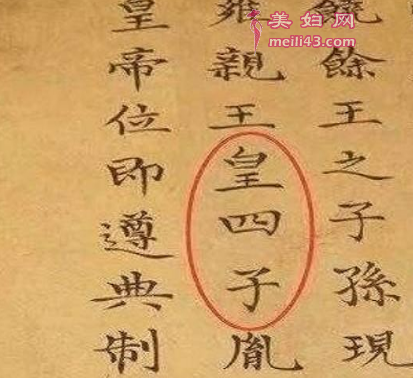 美妇网
meili43.com
饒餘王之子孫現
雍親王皇四子胤
皇帝位即遵典制